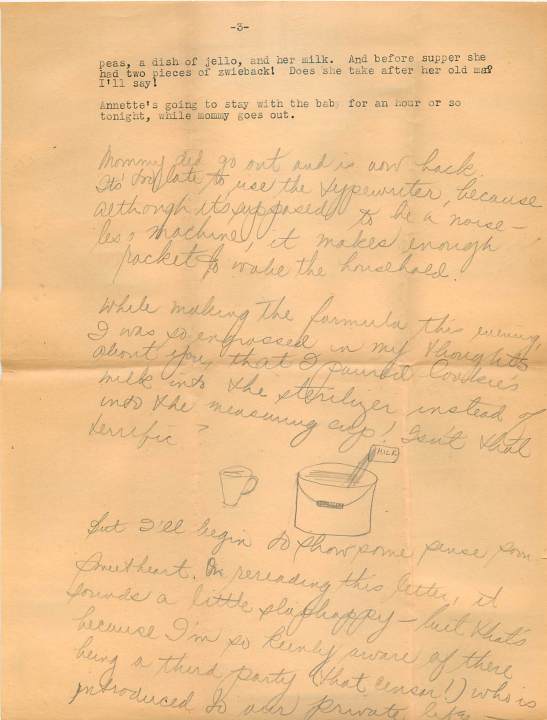 -3-
peas, a dish of jello, and her milk. And before supper she
had two pieces of zwieback! Does she take after her old man?
I'll say!
Annette's going to stay with the baby for an hour or so
tonight, while mommy goes out.
Mommy did go out and is now back.
It's too late to use the typewriter, because
although its supposed to be a noise-
less machine, it makes enough
racket to wake the household.
While making the formula this evening,
I was so engrossed in my thoughts
about you, that I poured Cookie's
milk into the sterilizer instead of
into the measuring cup! Isn't that
terrific?
MILK
But I'll begin to show some sense soon
sweetheart. On rereading this letter, it
sounds a little slaphappy - but that's
because I'm so keenly aware of there
being a third party (that censor!) who is
introduced to our private life